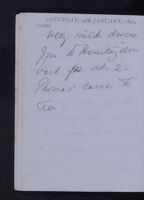 SATURDAY, 24th JANUARY, 1891.
very mild drove
Jim to Huntingdon
back for
Thomas came to
Tea -